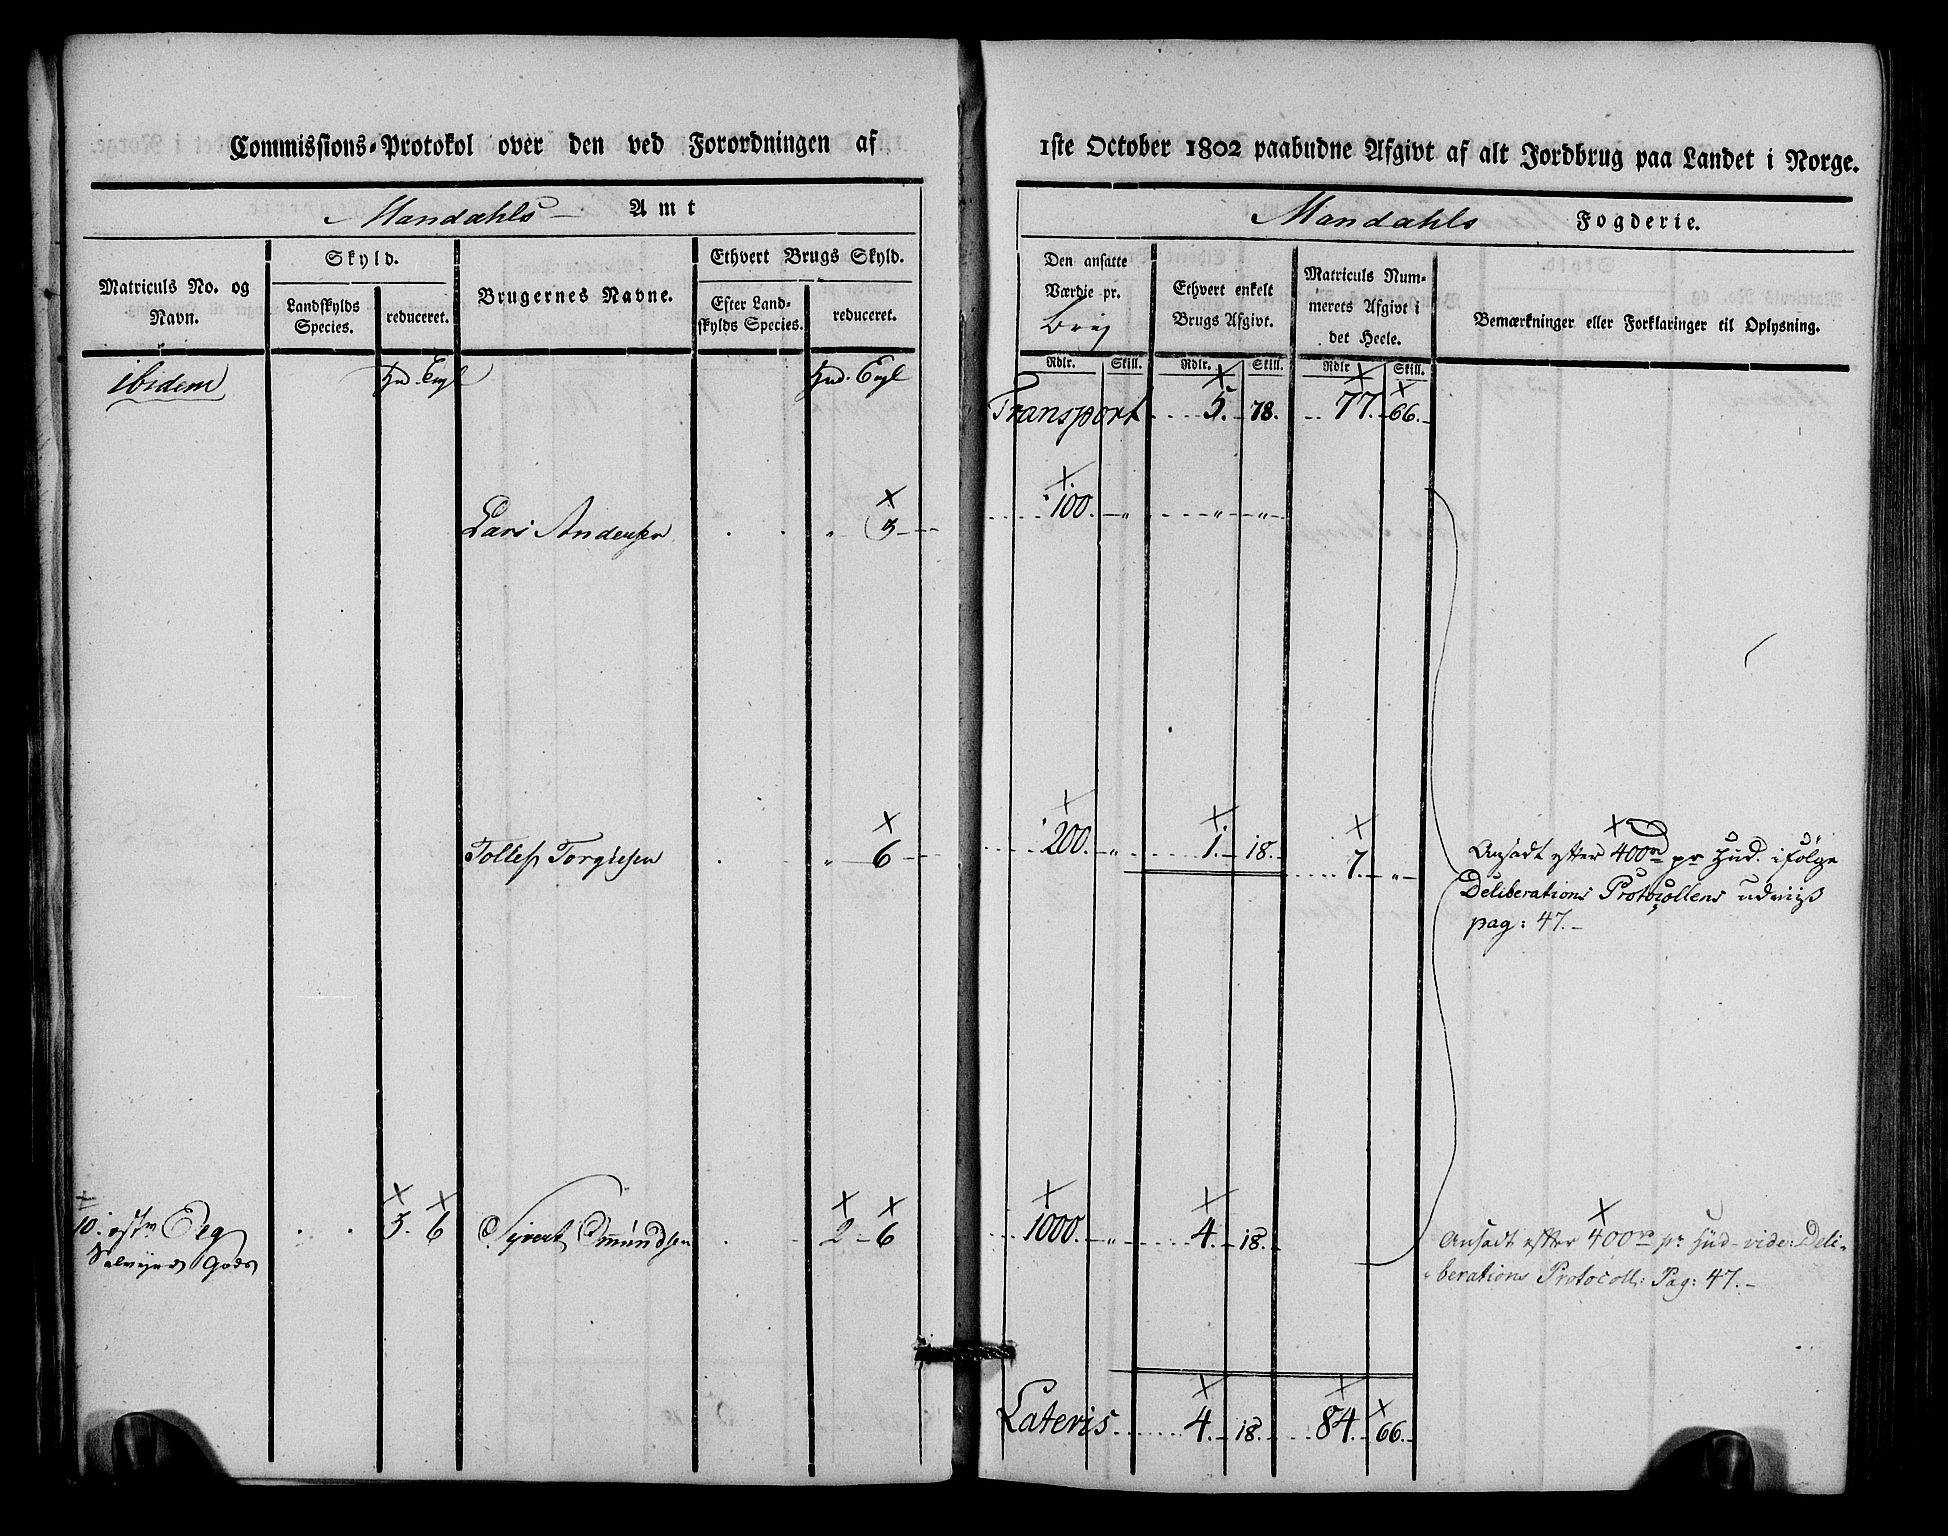 Commissions-Protokol over den ved Forordningen af
Mandahls Amt
Matriculs No. og Navn.
Skyld.
Landskylds Species.
reduceret.
Brugernes Navne.
Ethvert Brugs Skyld.
Efter Landskylds Species.
reduceret.
ibidem
Hud. Engl
Hud. Engl
Lars Andersen . . „ 3
Tollef Torgiesen . „ 6
10. østre Eeg 5. 6 Syvert Omundsen . 2 - 6
Salvejneds Gods
1ste October 1802 paabudne Afgivt af alt Jordbrug paa Landet i Norge.
Mandahls Fogderie.
Den ansatte Værdie pr. brug
Ethvert enkelt Brugs Afgivt.
Matriculs Nummerets Afgivt i det Heele.
Bemærkninger eller Forklaringer til Oplysning.
Rdlr. Skill. Rdlr. Skill. Rdlr Skill.
Transport 5. 78. 77. 66.
100. „ „ „
200. „ 1. 18. 7. „
Ansadt efter 400rd pr Hud. ifølge
Deliberations Protocollens udviis
pag: 47.-
1000. „ 4. 18.
Ansadt efter 400rd pr Hud vide: Deli-
berations Protocoll: Pag: 47.-
Lateris 4. 18. 84. 66.